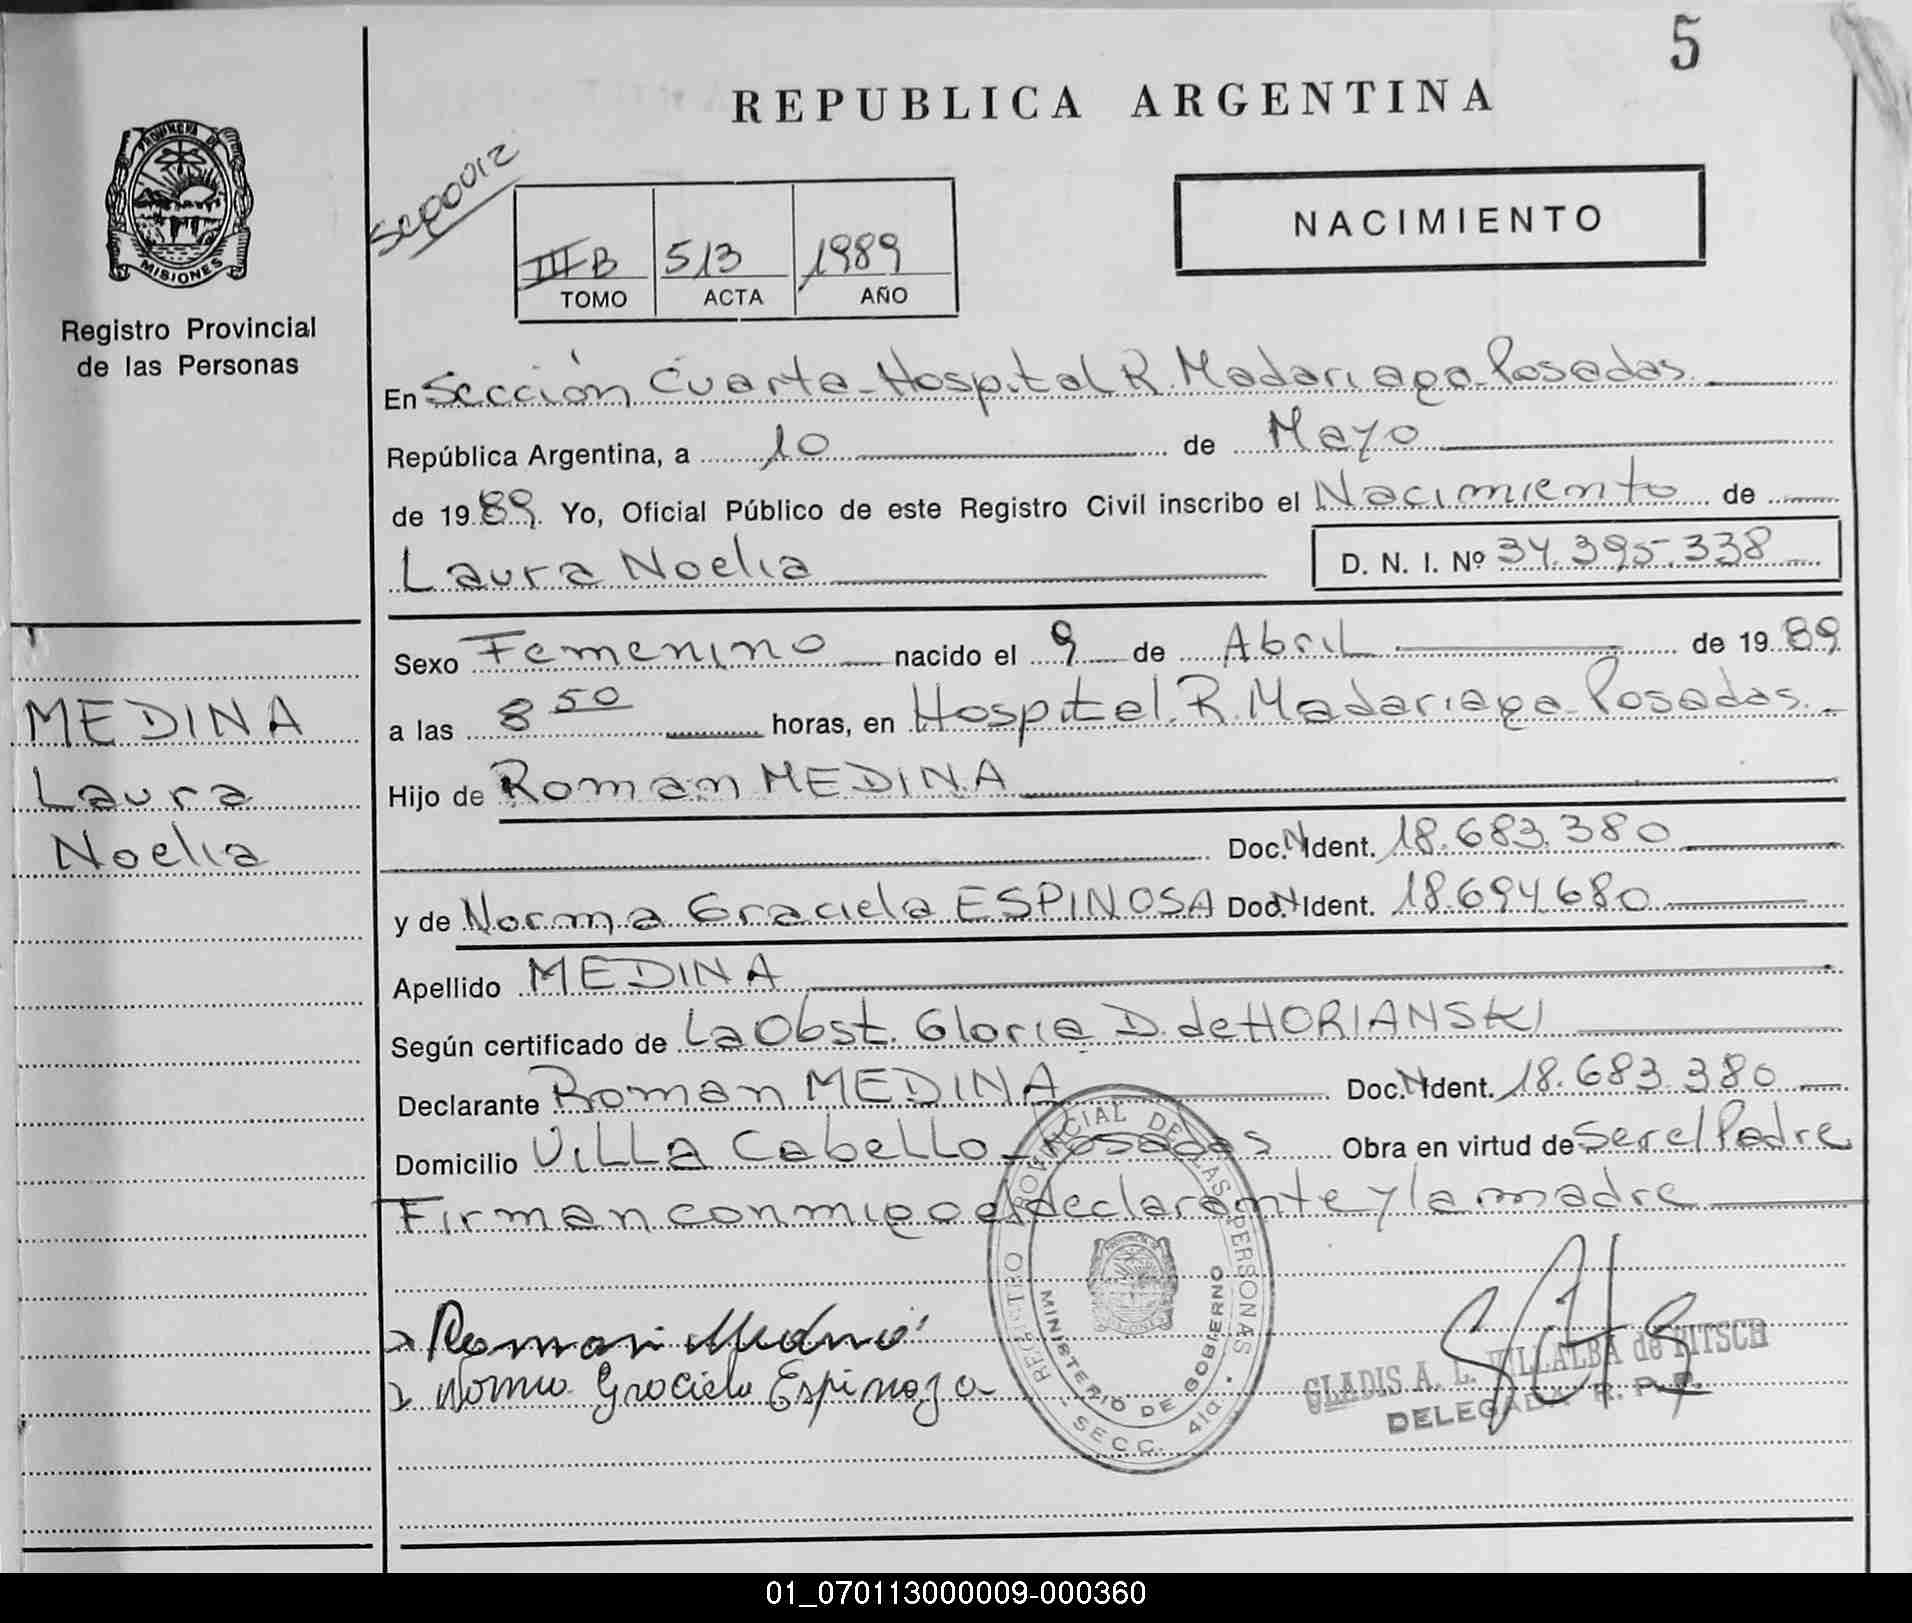 5
REPUBLICA ARGENTINA
PROVINCIA DE
MISIONES
Registro Provincial
de las Personas
III B 513 1989
TOMO ACTA AÑO
NACIMIENTO
En Sección Cuarta - Hospital R. Madariaga - Posadas.
República Argentina, a 10 de Mayo
de 1989. Yo, Oficial Público de este Registro Civil inscribo el Nacimiento de
Laura Noelia
D. N. I. Nº 34.395.338
Sexo Femenino nacido el 9 de Abril de 1989
a las 8 50 horas, en Hospital R. Madariaga - Posadas. -
Hijo de Roman MEDINA
Doc. N Ident. 18.683.380
y de Norma Graciela ESPINOSA Doc. N Ident. 18.694.680
Apellido MEDINA
Según certificado de La Obst. Gloria D. de HORIANSKI
Declarante Roman MEDINA Doc. N Ident. 18.683.380
Domicilio Villa Cabello - Posadas Obra en virtud de Ser el Padre
Firman conmigo el declarante y la madre
MEDINA
Laura
Noelia
Roman Medina
Norma Graciela Espinoza
REGISTRO PROVINCIAL DE LAS PERSONAS
MINISTERIO DE GOBIERNO
SECC. 4ta.
GLADIS A. L. VILLALBA de HITSCH
DELEGADA R. P. P.
01_070113000009-000360